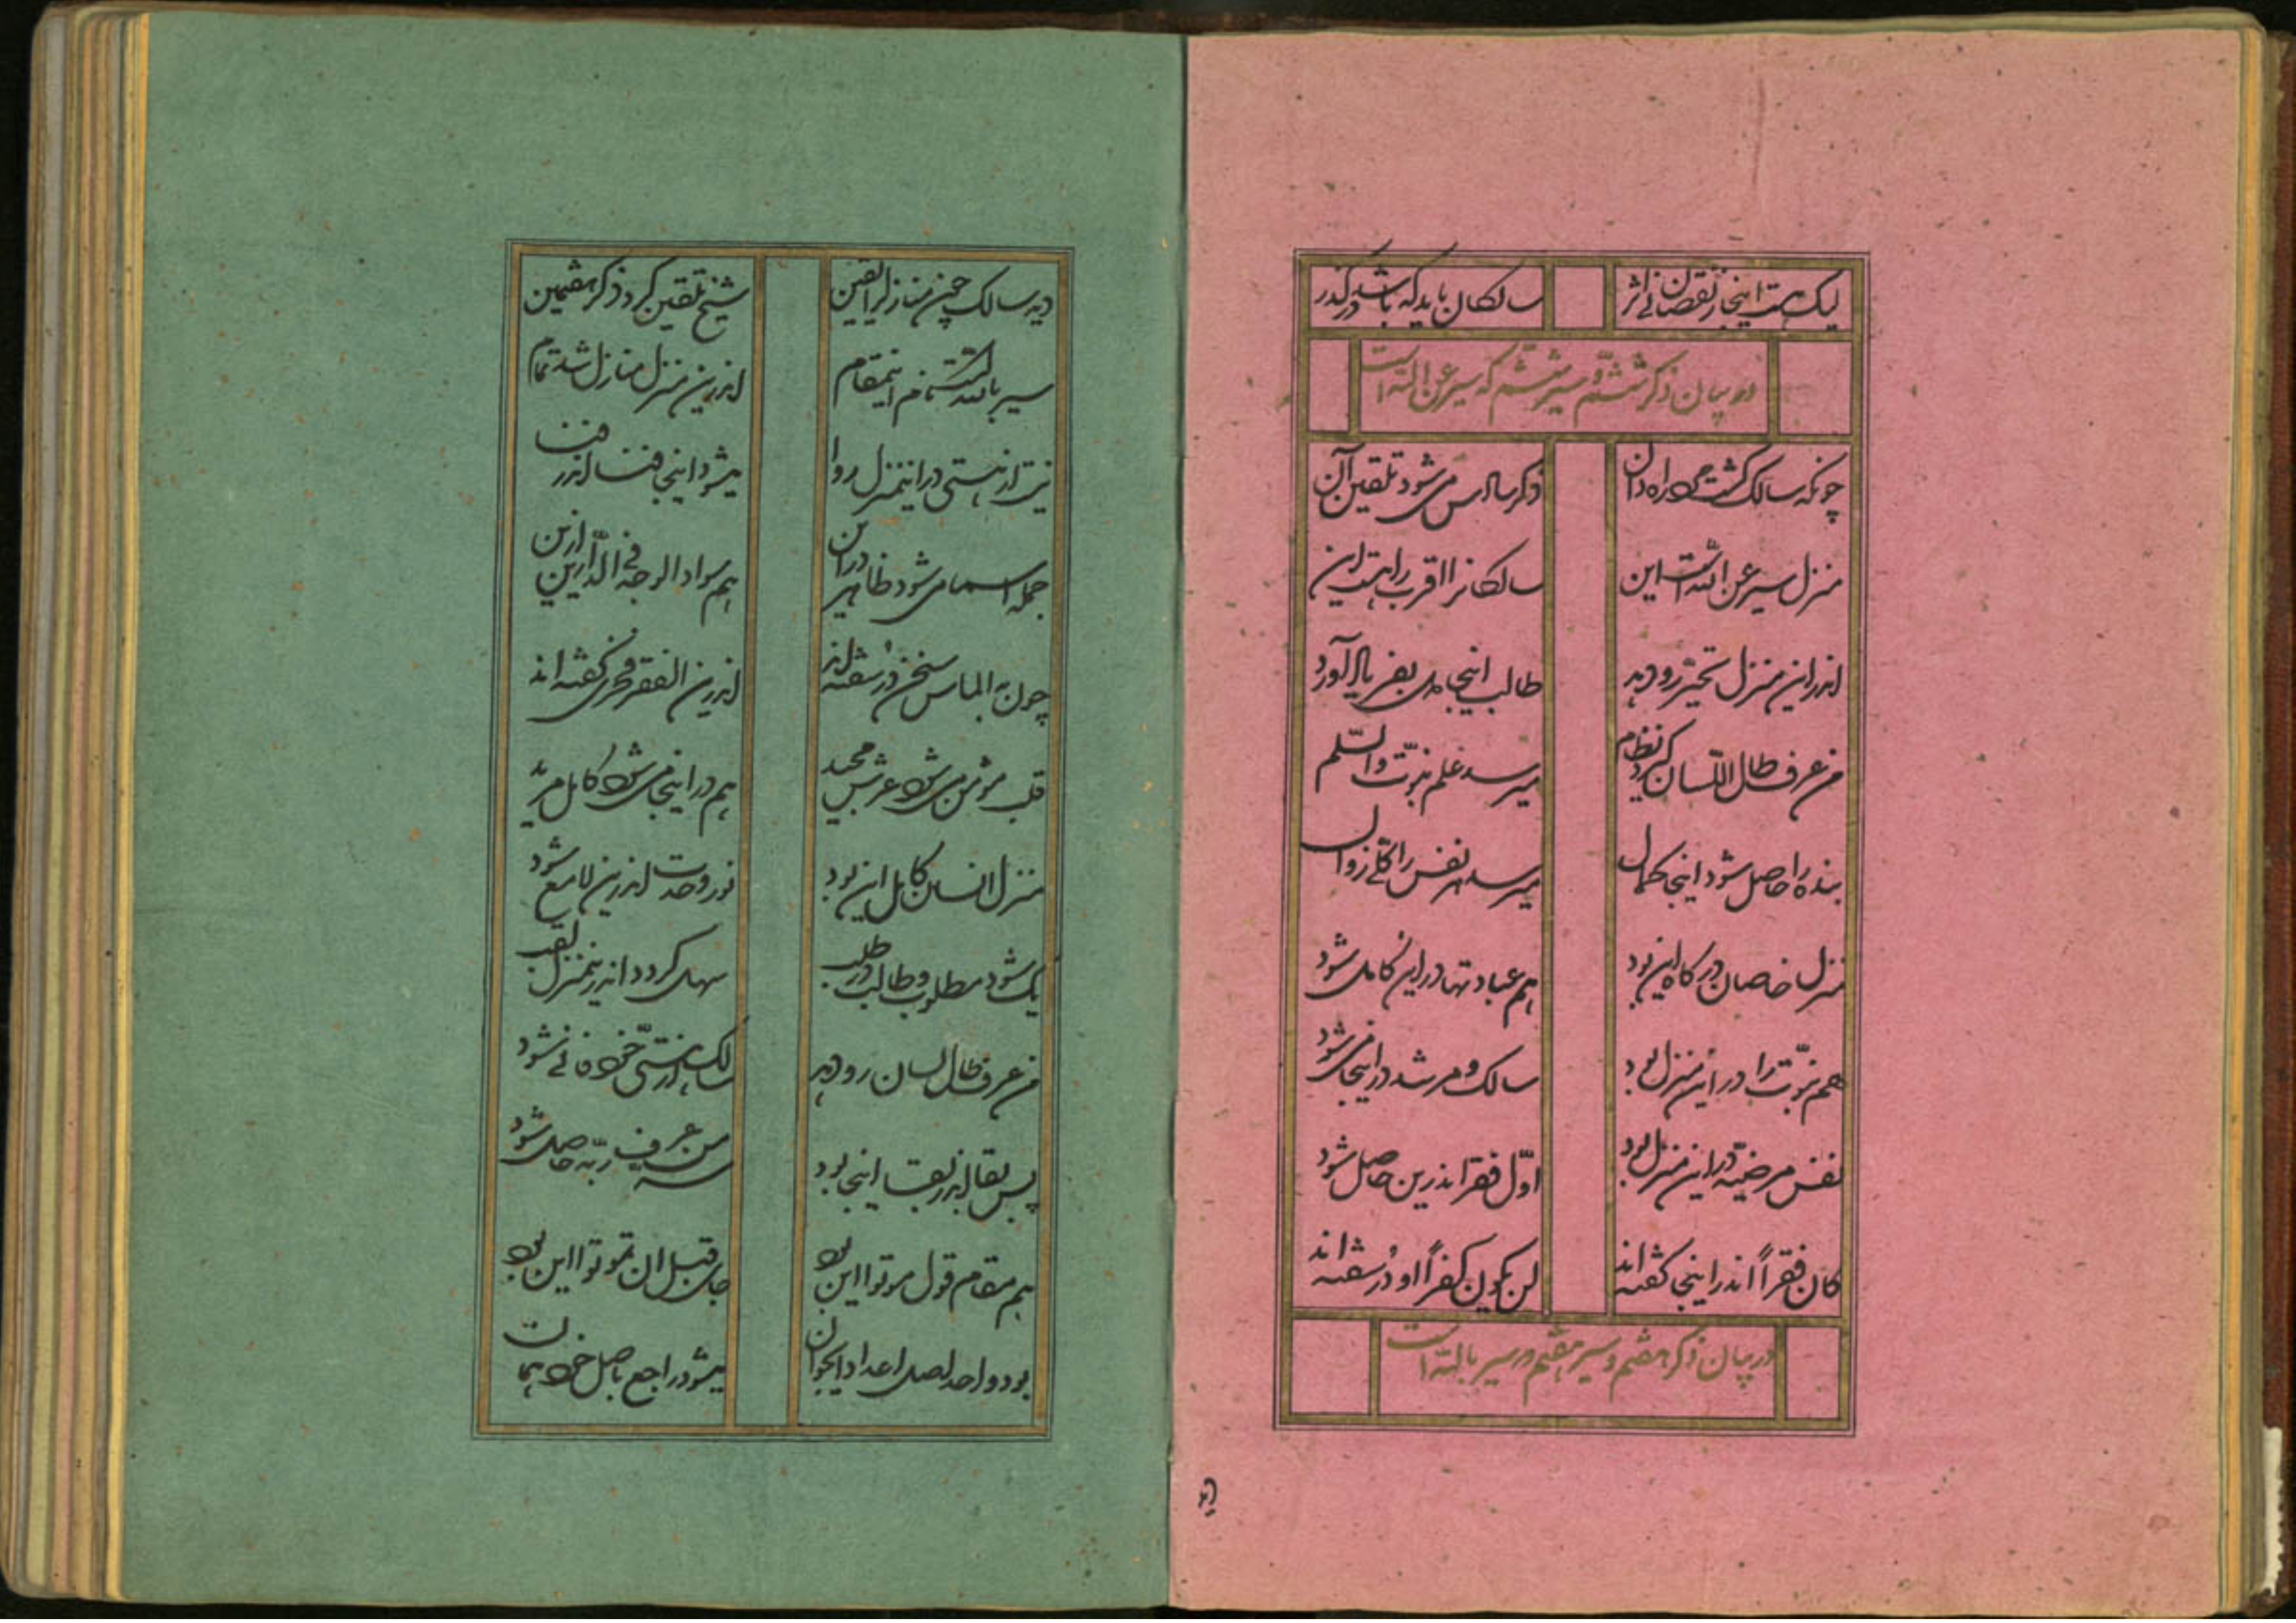 لیک هست اینجا ز نقصان اثر
سالکان باید که باشد در گذر
در بیان ذکر ششم و سیر ششم که سیر عن الله است
چونکه سالک گشت راه دان
ذکر سادس می شود تلقین آن
منزل سیر عن الله است این
سالکانرا اقرب راهست این
اندر این منزل تحیر رو دهد
طالب اینجا
من عرف طال اللسان گیرد نظام
میرسد علم نبوت والسلم
بنده را حاصل شود اینجا کمال
میرسد مر نفس را زوال
منزل خاصان درگاه این بود
هم عبادتها در این کامل شود
هم نبوت را در این منزل بود
سالک و مرشد در اینجا می شود
نفس مرضیه در این منزل بود
اول فقر اندرین حاصل شود
کان فقراً اندر اینجا گفته اند
لن یکون کفراً او در سفته اند
در بیان ذکر هفتم و سیر هفتم و سیر بالله است
دید
دید سالک چون منازل را یقین
شیخ تلقین کرد ذکر هفتمین
سیر بالله است اینمقام
اندرین منزل منازل شد تمام
نیست از هستی در اینمنزل روا
میشود اینجا فنا اندر فنا
جمله اسما می شود ظاهر در این
هم سواد الوجه فی الدارین ازین
چون به الماس سخن در سفته اند
اندرین الفقر فخری گفته اند
قلب مؤمن می شود عرش مجید
هم در اینجا می شود کامل مرید
منزل انسان کامل این بود
نور وحدت اندرین لامع شود
یک شود مطلوب و طالب در طلب
گردد اندرینمنزل لقب
من عرف طال لسان رو دهد
سالک از هستی خود فانی شود
پس بقا اندر بقا اینجا بود
من عرف ربه حاصل شود
هم مقام قول موتوا این بود
جای قبل ان تموتوا این بود
بود واحد اصل اعداد ایجوان
میشود راجع باصل خود همان